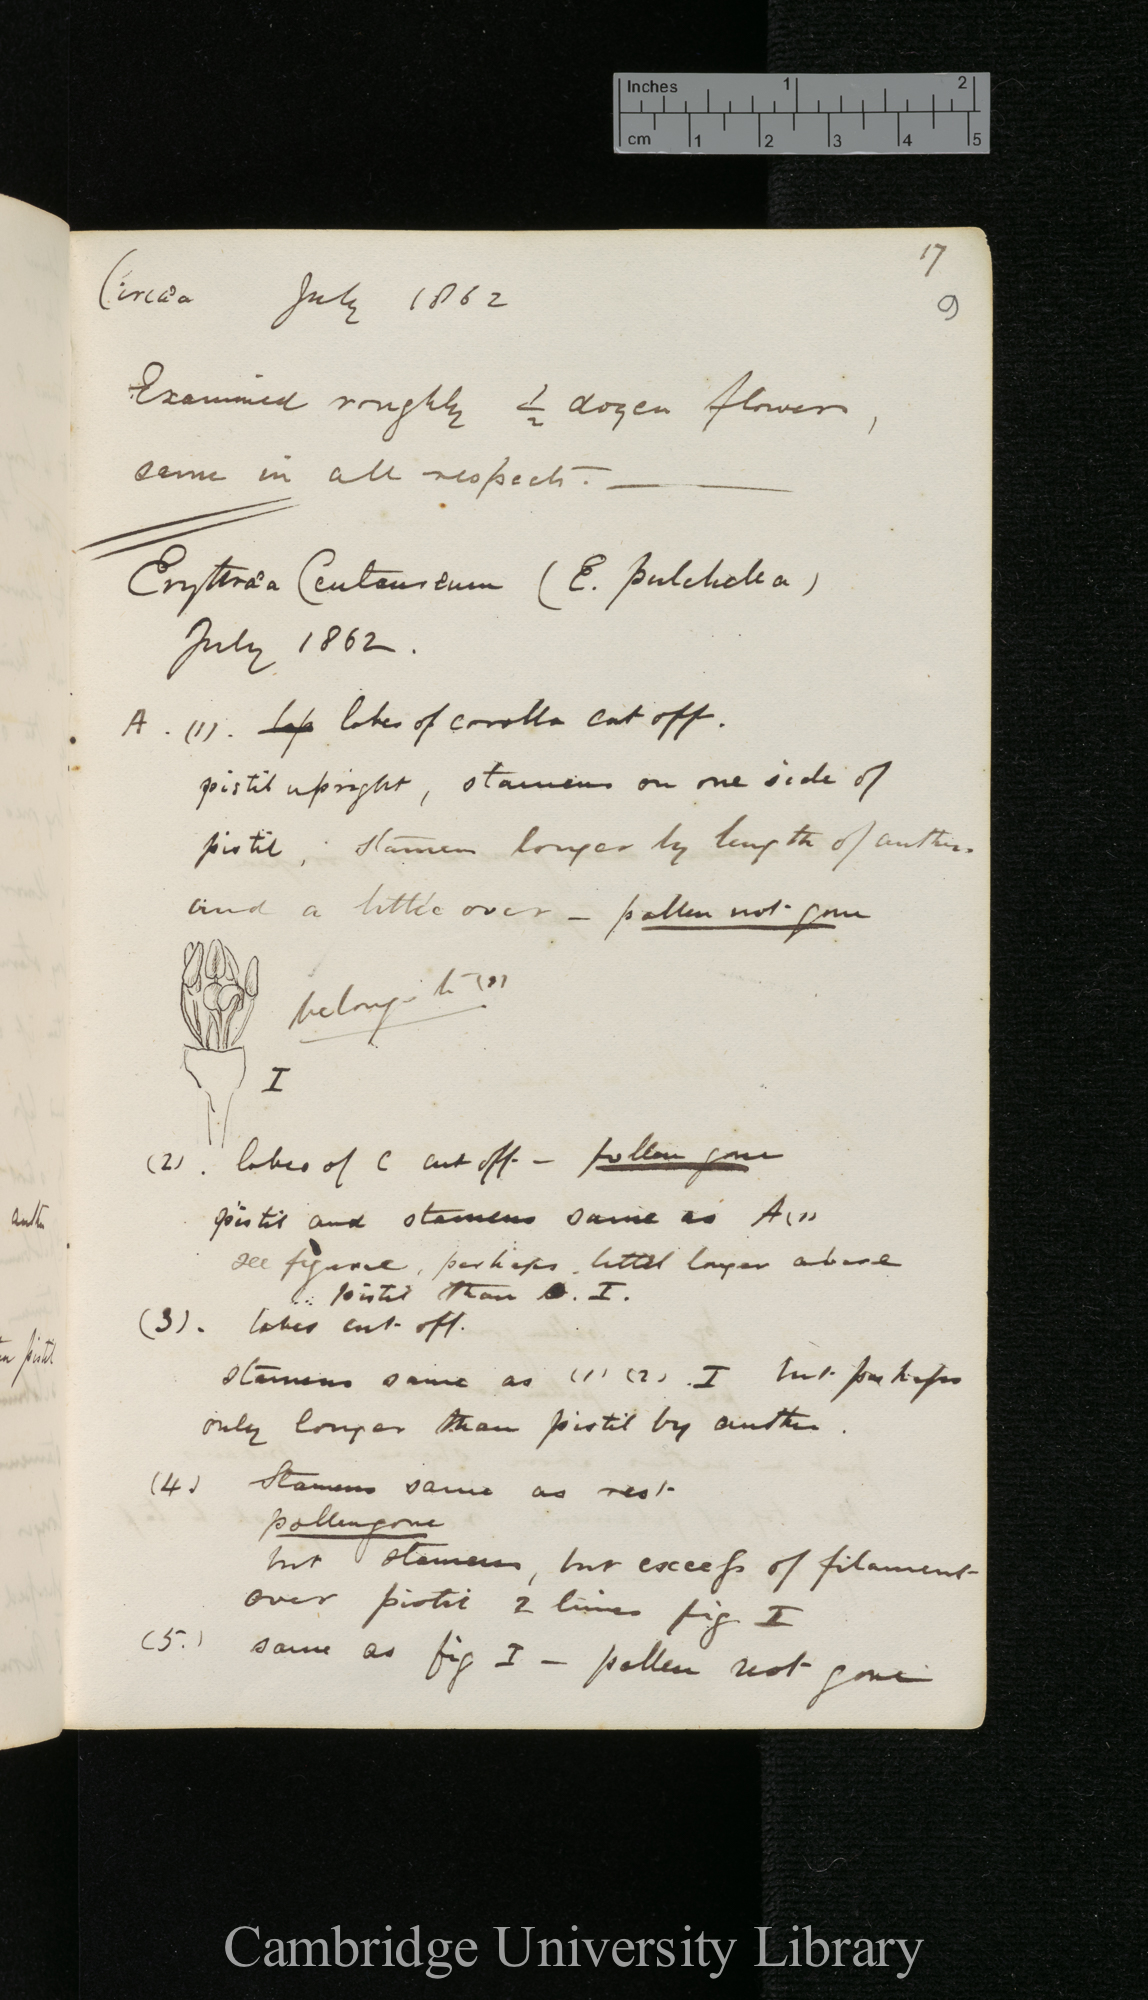 Inches 1 2
cm 1 2 3 4 5
17
9
Circæa July 1862
Examined roughly ½ dozen flowers,
same in all respects. —
Erythræa Centaureum (E. pulchella)
July 1862.
A. (1). lop lobes of corolla cut off.
pistil upright, stamens on one side of
pistil, stamen longer by length of anther
and a little over – pollen not gone
belongs to (1)
I
(2). lobes of C cut off – pollen gone
pistil and stamens same as A(1)
see figure, perhaps little longer above
pistil than . I.
(3). lobes cut off.
stamens same as (1) (2) . I but perhaps
only longer than pistil by anther.
(4) Stamens same as rest
pollen gone
but stamens, but excess of filament
over pistil 2 lines fig I
(5.) same as fig I – pollen not gone
anther
pistil
Cambridge University Library